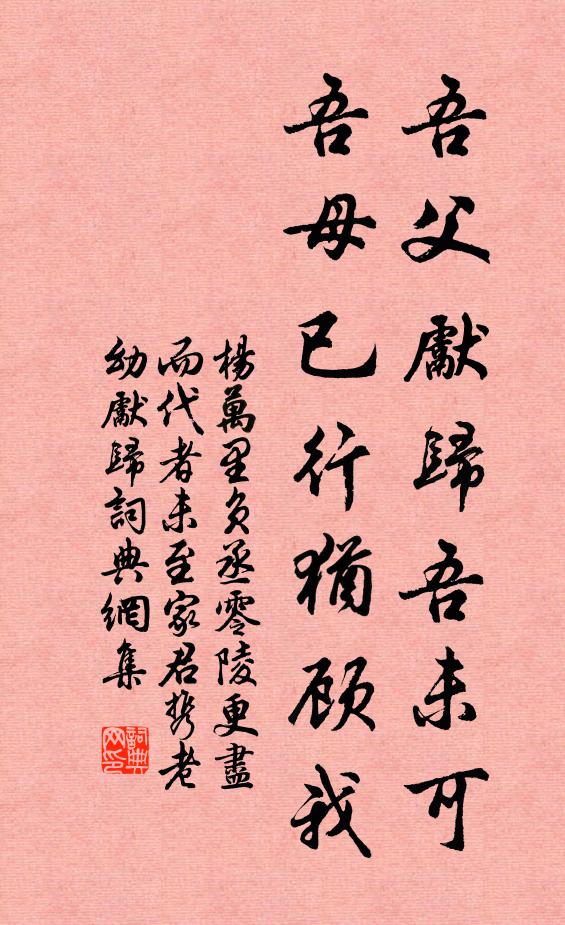 吾父獻歸吾未可
吾母已行猶顾我
楊萬里負丞零陵更盡
而代者未至家君携老
幼獻歸詞典網集
詞典网印